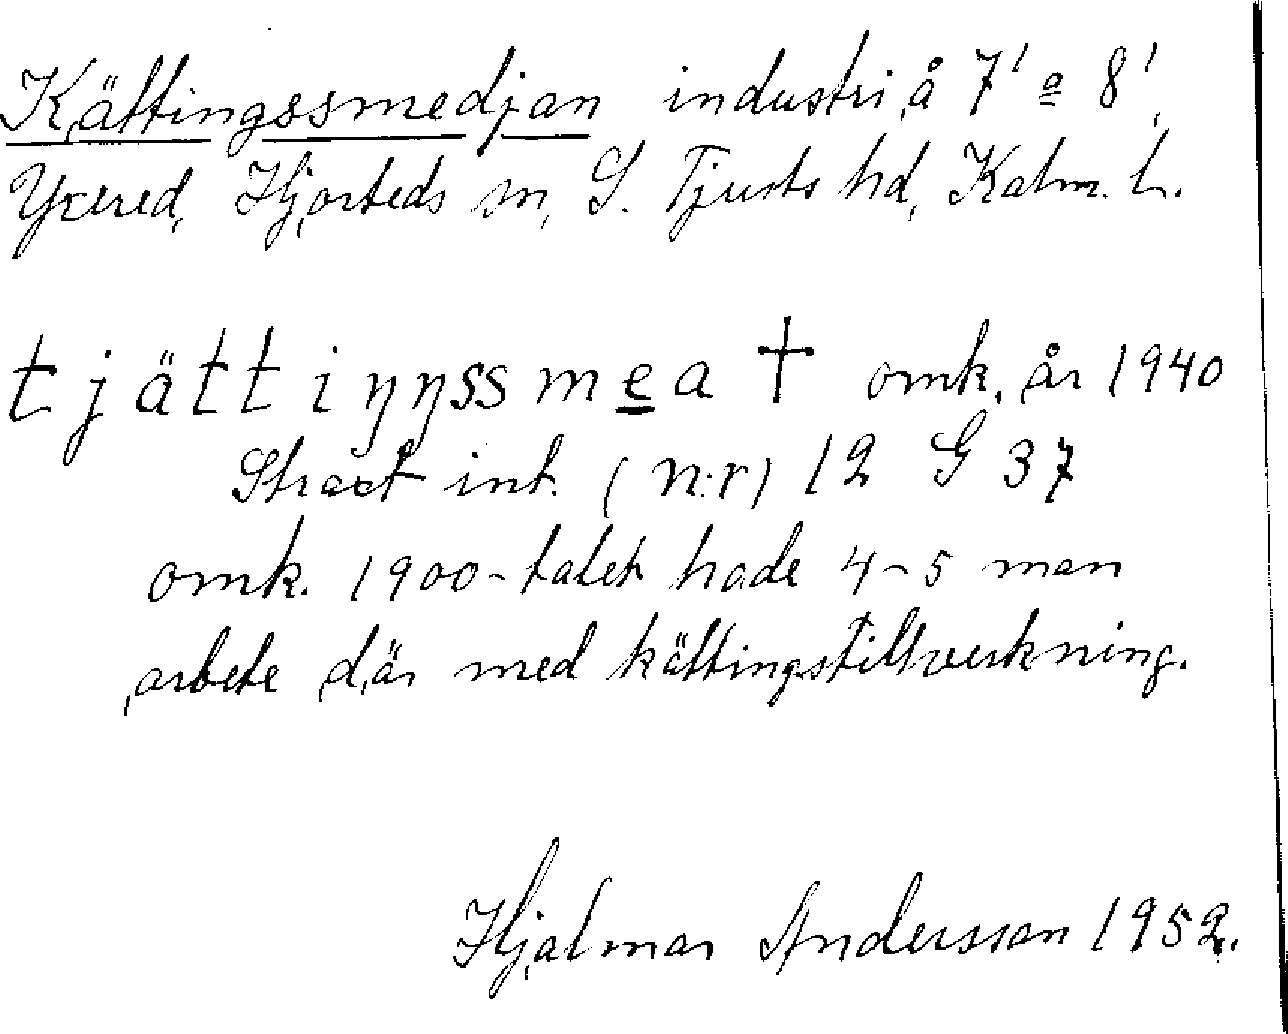 Kättingssmedjan industri å 7' o 8',
Yxered, Hjorteds sn, S. Tjusts hd, Kalm. l.
tjättiŋŋssmea † omk. år 1940
Straxt int. (n:r) 12 G 37
omk. 1900-talet hade 4-5 man
arbete där med kättingstillverkning.
Hjalmar Andersson 1952.